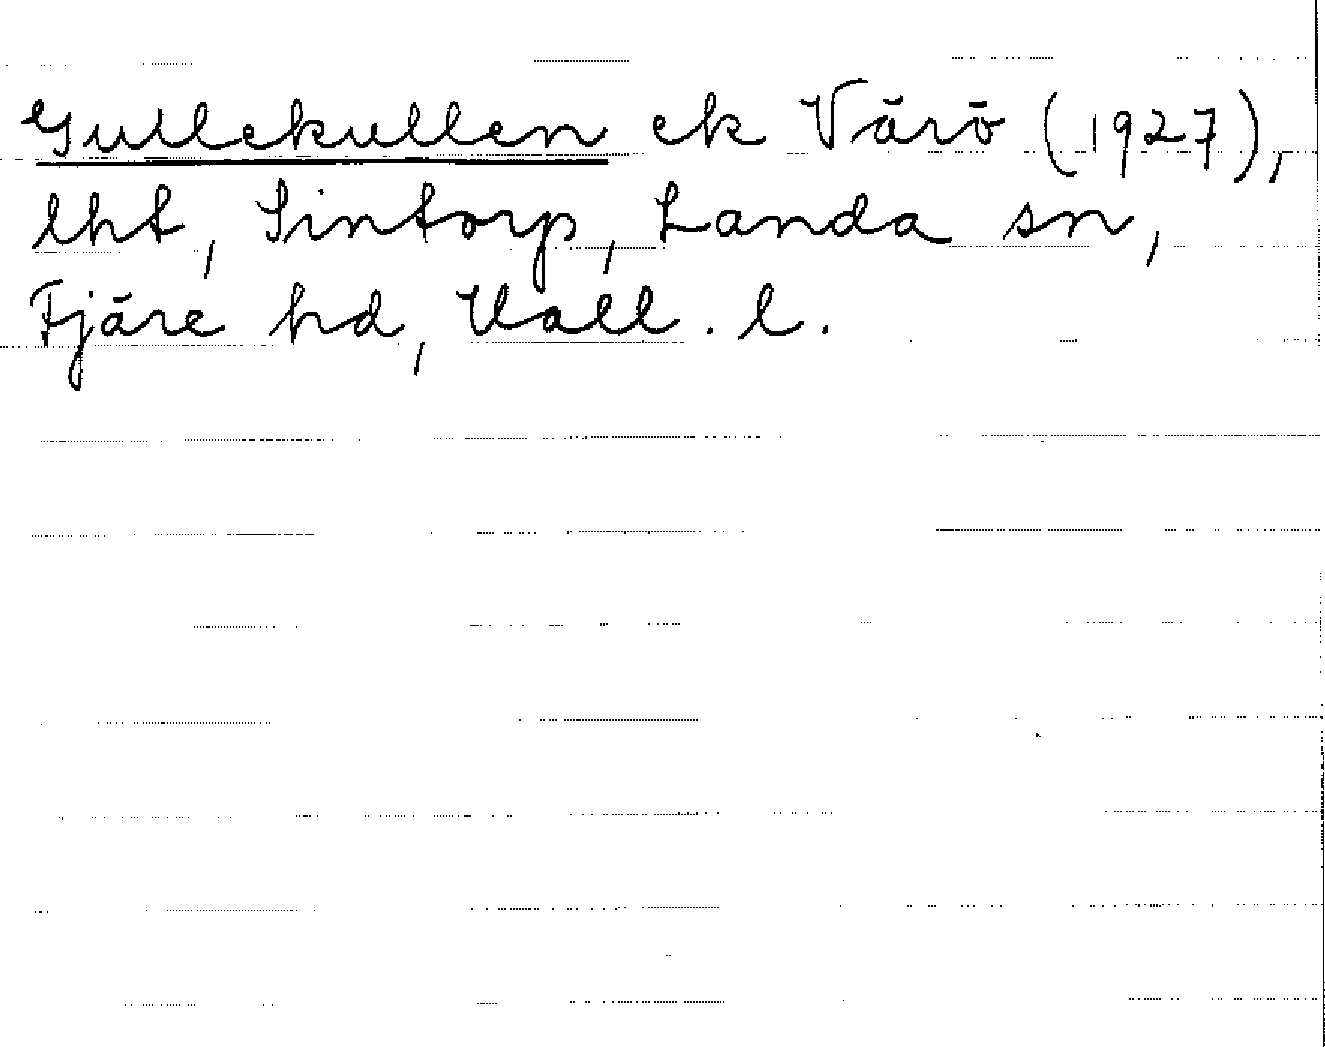 Gullekullen ek Värö (1927),
lht, Sintorp, Landa sn,
Fjäre hd, Hall. l.